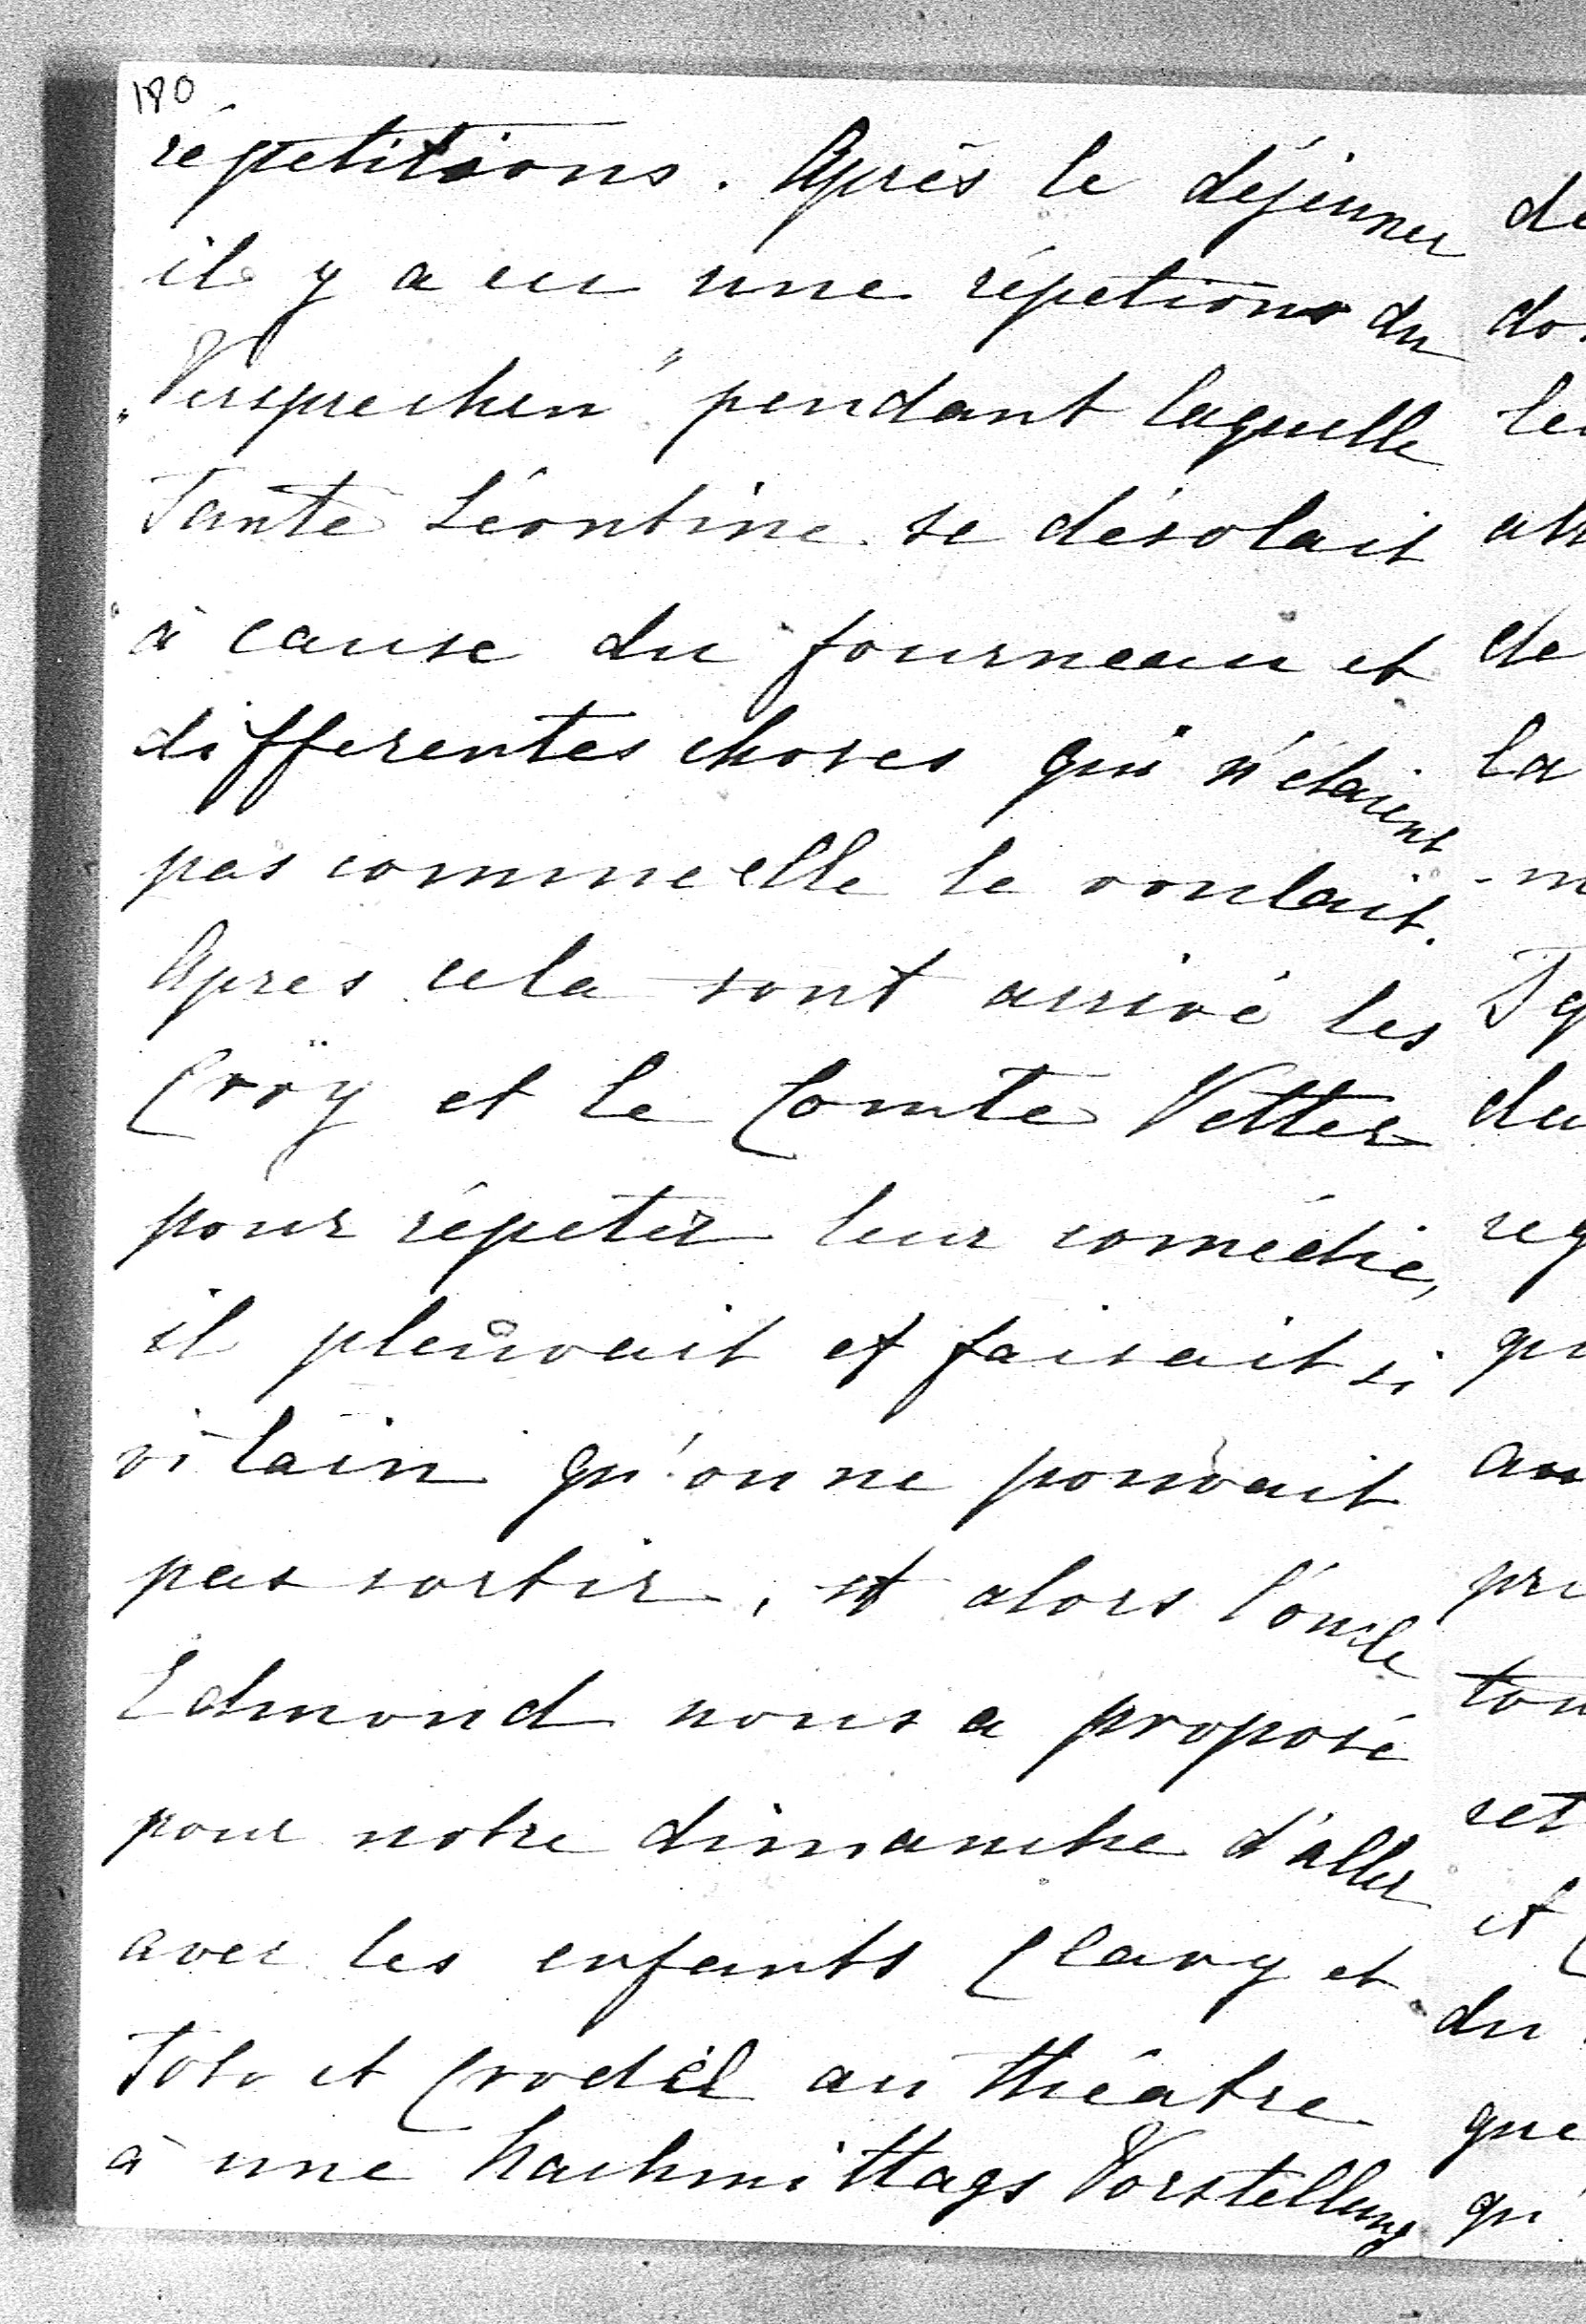 180
répetitions. Après le déjeuner
il y a eu une répetions du
„Versprechen" pendant laquelle
Tante Léontine se désolait
à cause du fourneau et
differentes choses qui n'étaient
pas comme elle le voulait.
Après cela sont arrivé les
Croÿ et le Comte Vetter
pour répeter leur comédie,
il pleuvait et faisait si
vilain qu'on ne pouvait
pas sortir, et alors l'oncle
Edmond nous a proposé
pour notre dimanche d'aller
avec les enfants Clary et
Toto et Crodel au théâtre
à une Nachmittags Vorstellung